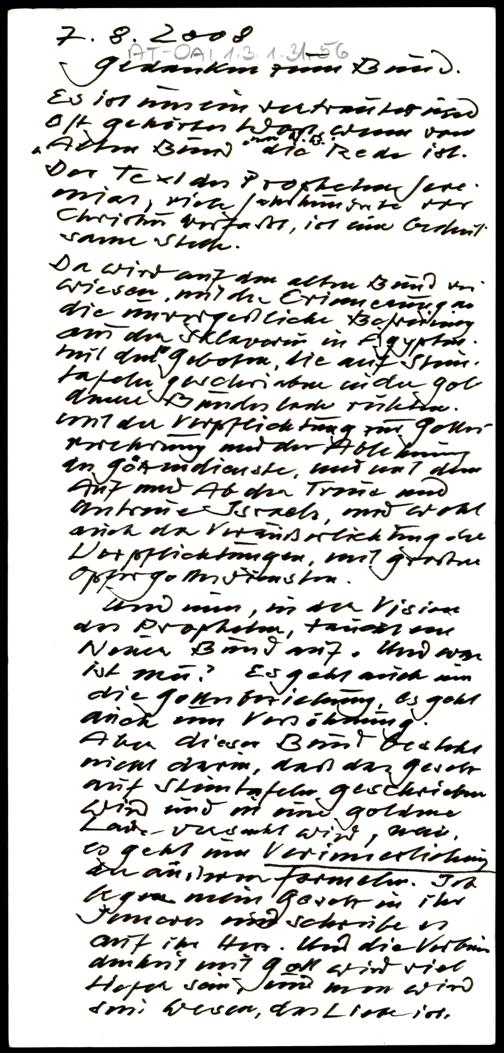 7. 8. 2008
AT-OAI 1.3.1.31-56
Gedanken zum Bund.
Es ist uns ein vertrautes und
oft gehörtes Wort, wenn vom
"Alten Bund" die Rede ist.
Der Text des Propheten Jere-
mias, viele Jahrhunderte vor
Christus verfasst, ist eine bedeut-
same Stelle.
Da wird auf den alten Bund ver-
wiesen, mit der Erinnerung an
die unvergeßliche Befreiung
aus der Sklaverei in Ägypten.
mit den Geboten, die auf Stein-
tafeln geschrieben in der gol
denen Bundeslade ruhten.
mit der Verpflichtung zur Gottes
verehrung und der Ablehnung
des Götzendienste, und mit dem
Auf und Ab der Treue und
Untreue Israels, und wohl
auch der Veräußerlichung der
Verpflichtungen, mit großen
Opfergottesdiensten.
Und nun, in der Vision
des Propheten, taucht ein
Neuer Bund auf. Und was
ist neu? Es geht auch um
die Gottesbeziehung, es geht
auch um Versöhnung.
Aber dieser Bund besteht
nicht darin, daß das Gesetz
auf Steintafeln geschrieben
wird und in eine goldene
Lade versenkt wird, nein,
es geht um Verinnerlichung
der äußeren Formeln. Ich
lege mein Gesetz in ihr
Inneres und schreibe es
auf ihr Herz. Und die Verbun
denheit mit Gott wird viel
tiefer sein, und man wird
sein Wesen, das Liebe ist.